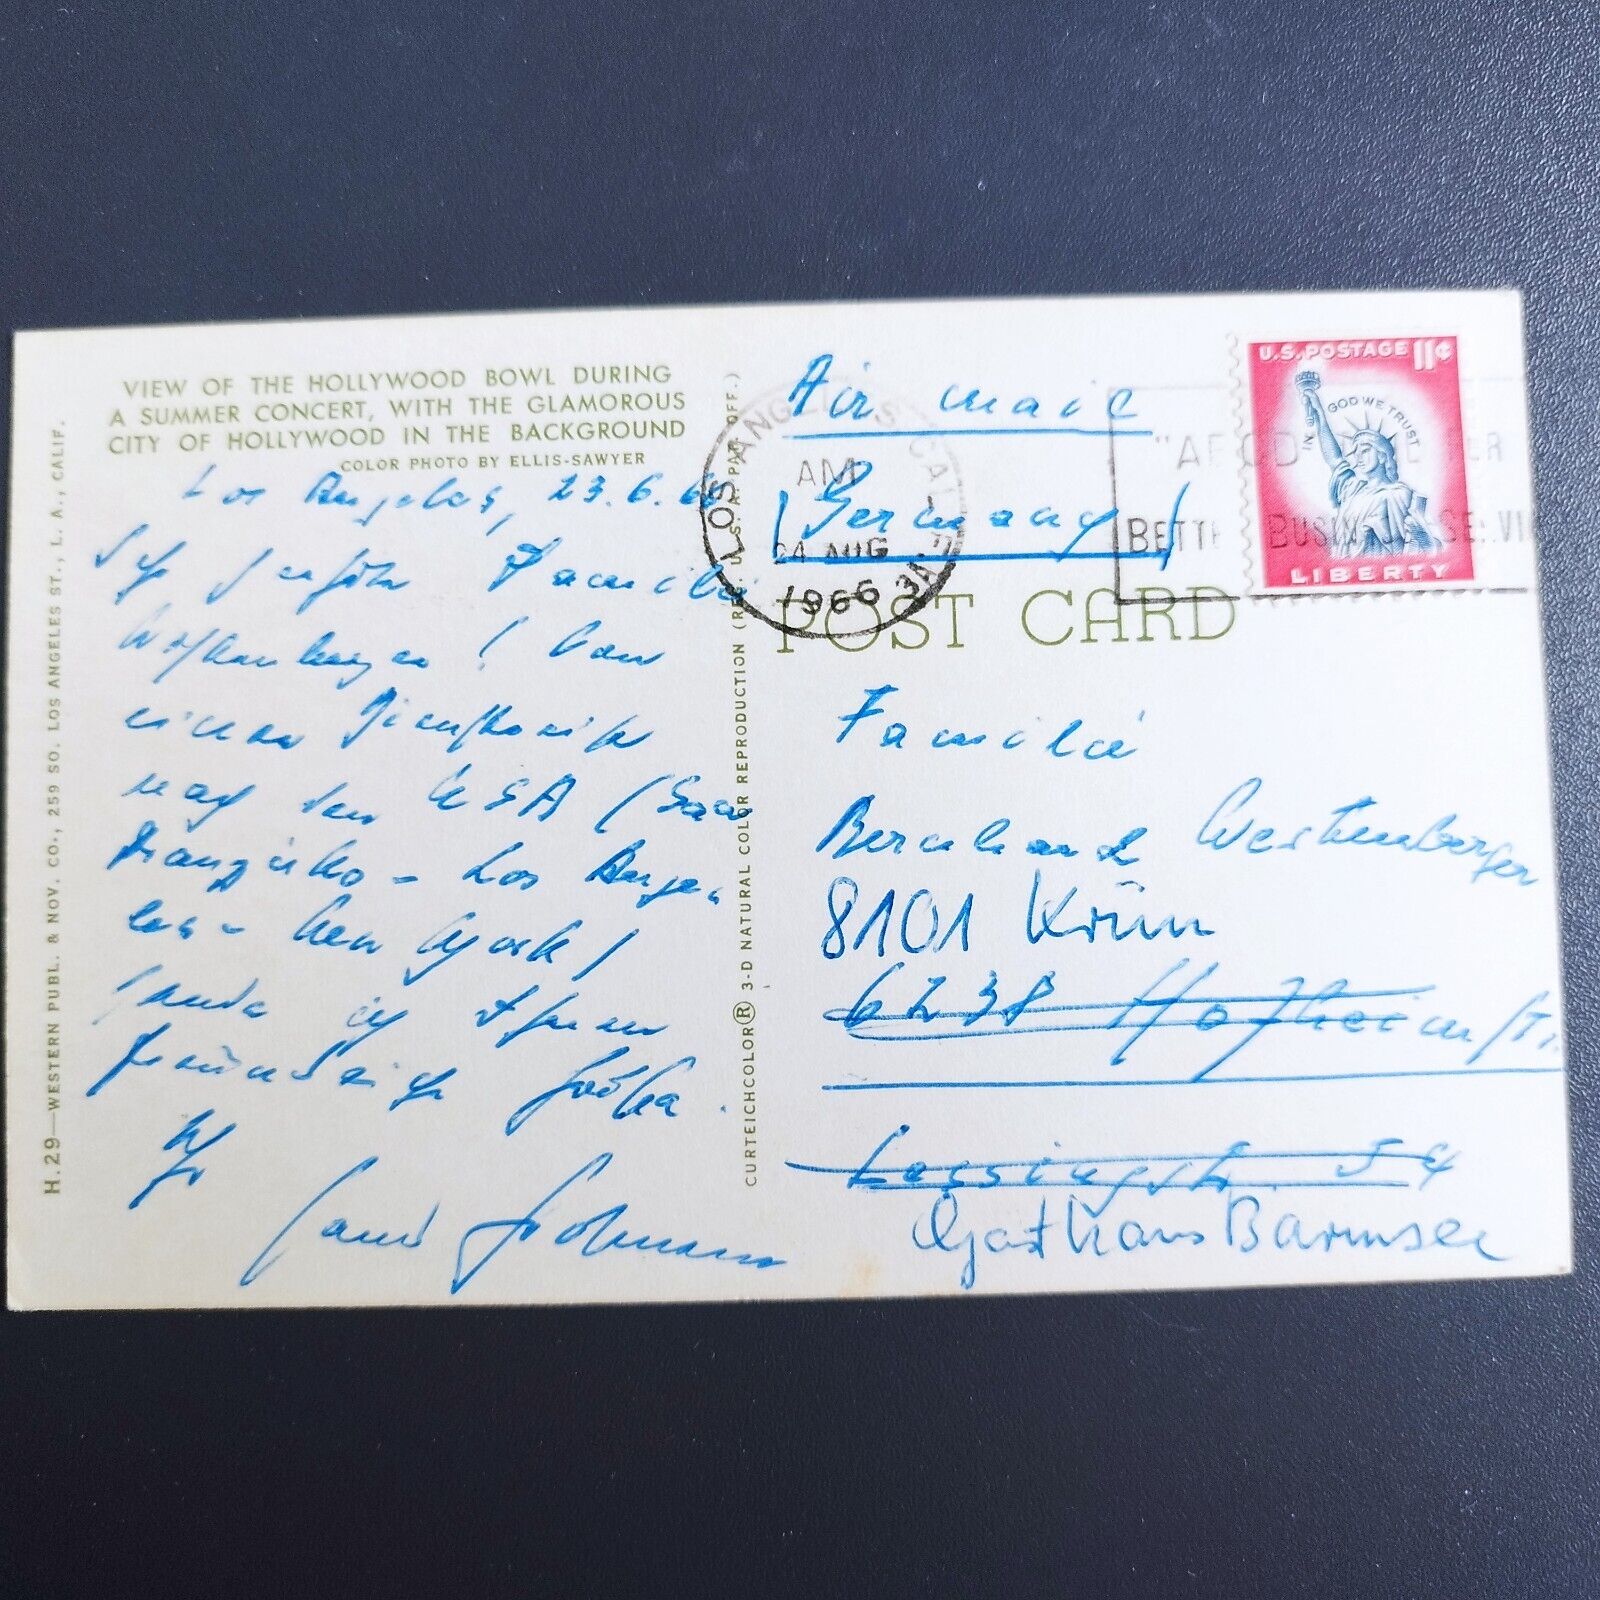 VIEW OF THE HOLLYWOOD BOWL DURING
A SUMMER CONCERT, WITH THE GLAMOROUS
CITY OF HOLLYWOOD IN THE BACKGROUND
COLOR PHOTO BY ELLIS-SAWYER
Los Angeles, 23.6.66
Sehr geehrte Familie
Westenberger! Von
einer Dienstreise
nach den USA (San
Franzisko - Los Ange-
les - New York)
sende ich Ihnen
freundliche Grüße.
Ihr
H.29—WESTERN PUBL. & NOV. CO., 259 SO. LOS ANGELES ST., L. A., CALIF.
CURTEICHCOLOR® 3-D NATURAL COLOR REPRODUCTION (REG. U.S.A. PAT. OFF.)
Air mail
(Germany)
LOS ANGELES, CALIF
AM
24 AUG
1966
BETTER BUSINESS SERVI
U.S. POSTAGE 11¢
IN GOD WE TRUST
LIBERTY
POST CARD
Familie
Bernhard Westenberger
8101 Krün
6238 Hofheim/Ts.
Lessingstr. 54
Gasthaus Barmsee